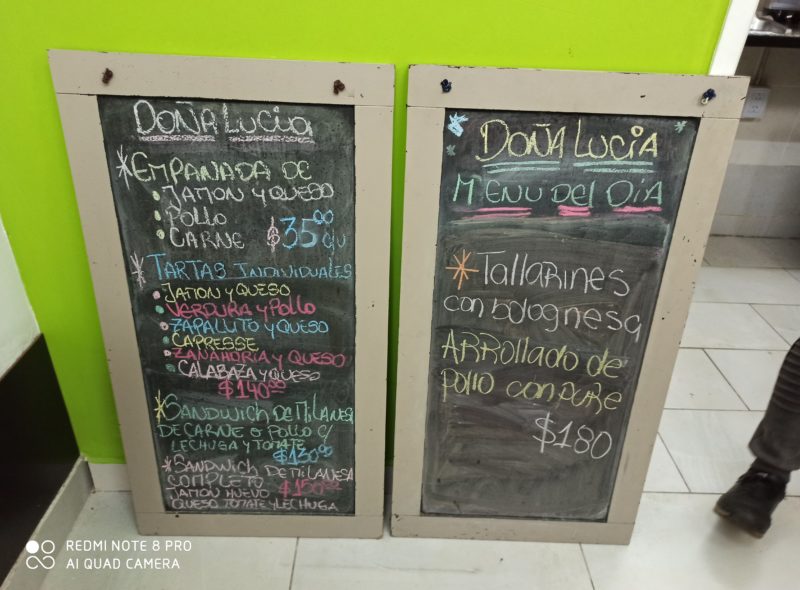 DOÑA LUCIA
*EMPANADA DE
• JAMON Y QUESO
• POLLO
• CARNE $35⁰⁰ c/u
*TARTAS INDIVIDUALES
• JAMON Y QUESO
• VERDURA Y POLLO
• ZAPALLITO Y QUESO
• CAPRESSE
• ZANAHORIA Y QUESO
• CALABAZA Y QUESO
$140⁰⁰
*SANDWICH DE MILANESA
DE CARNE O POLLO C/
LECHUGA Y TOMATE
$130⁰⁰
*SANDWICH DE MILANESA
COMPLETO $150⁰⁰
JAMON HUEVO
QUESO TOMATE Y LECHUGA
DOÑA LUCIA
MENU DEL DIA
*Tallarines
con bolognesa
ARROLLADO de
pollo con PURE
$180
REDMI NOTE 8 PRO
AI QUAD CAMERA